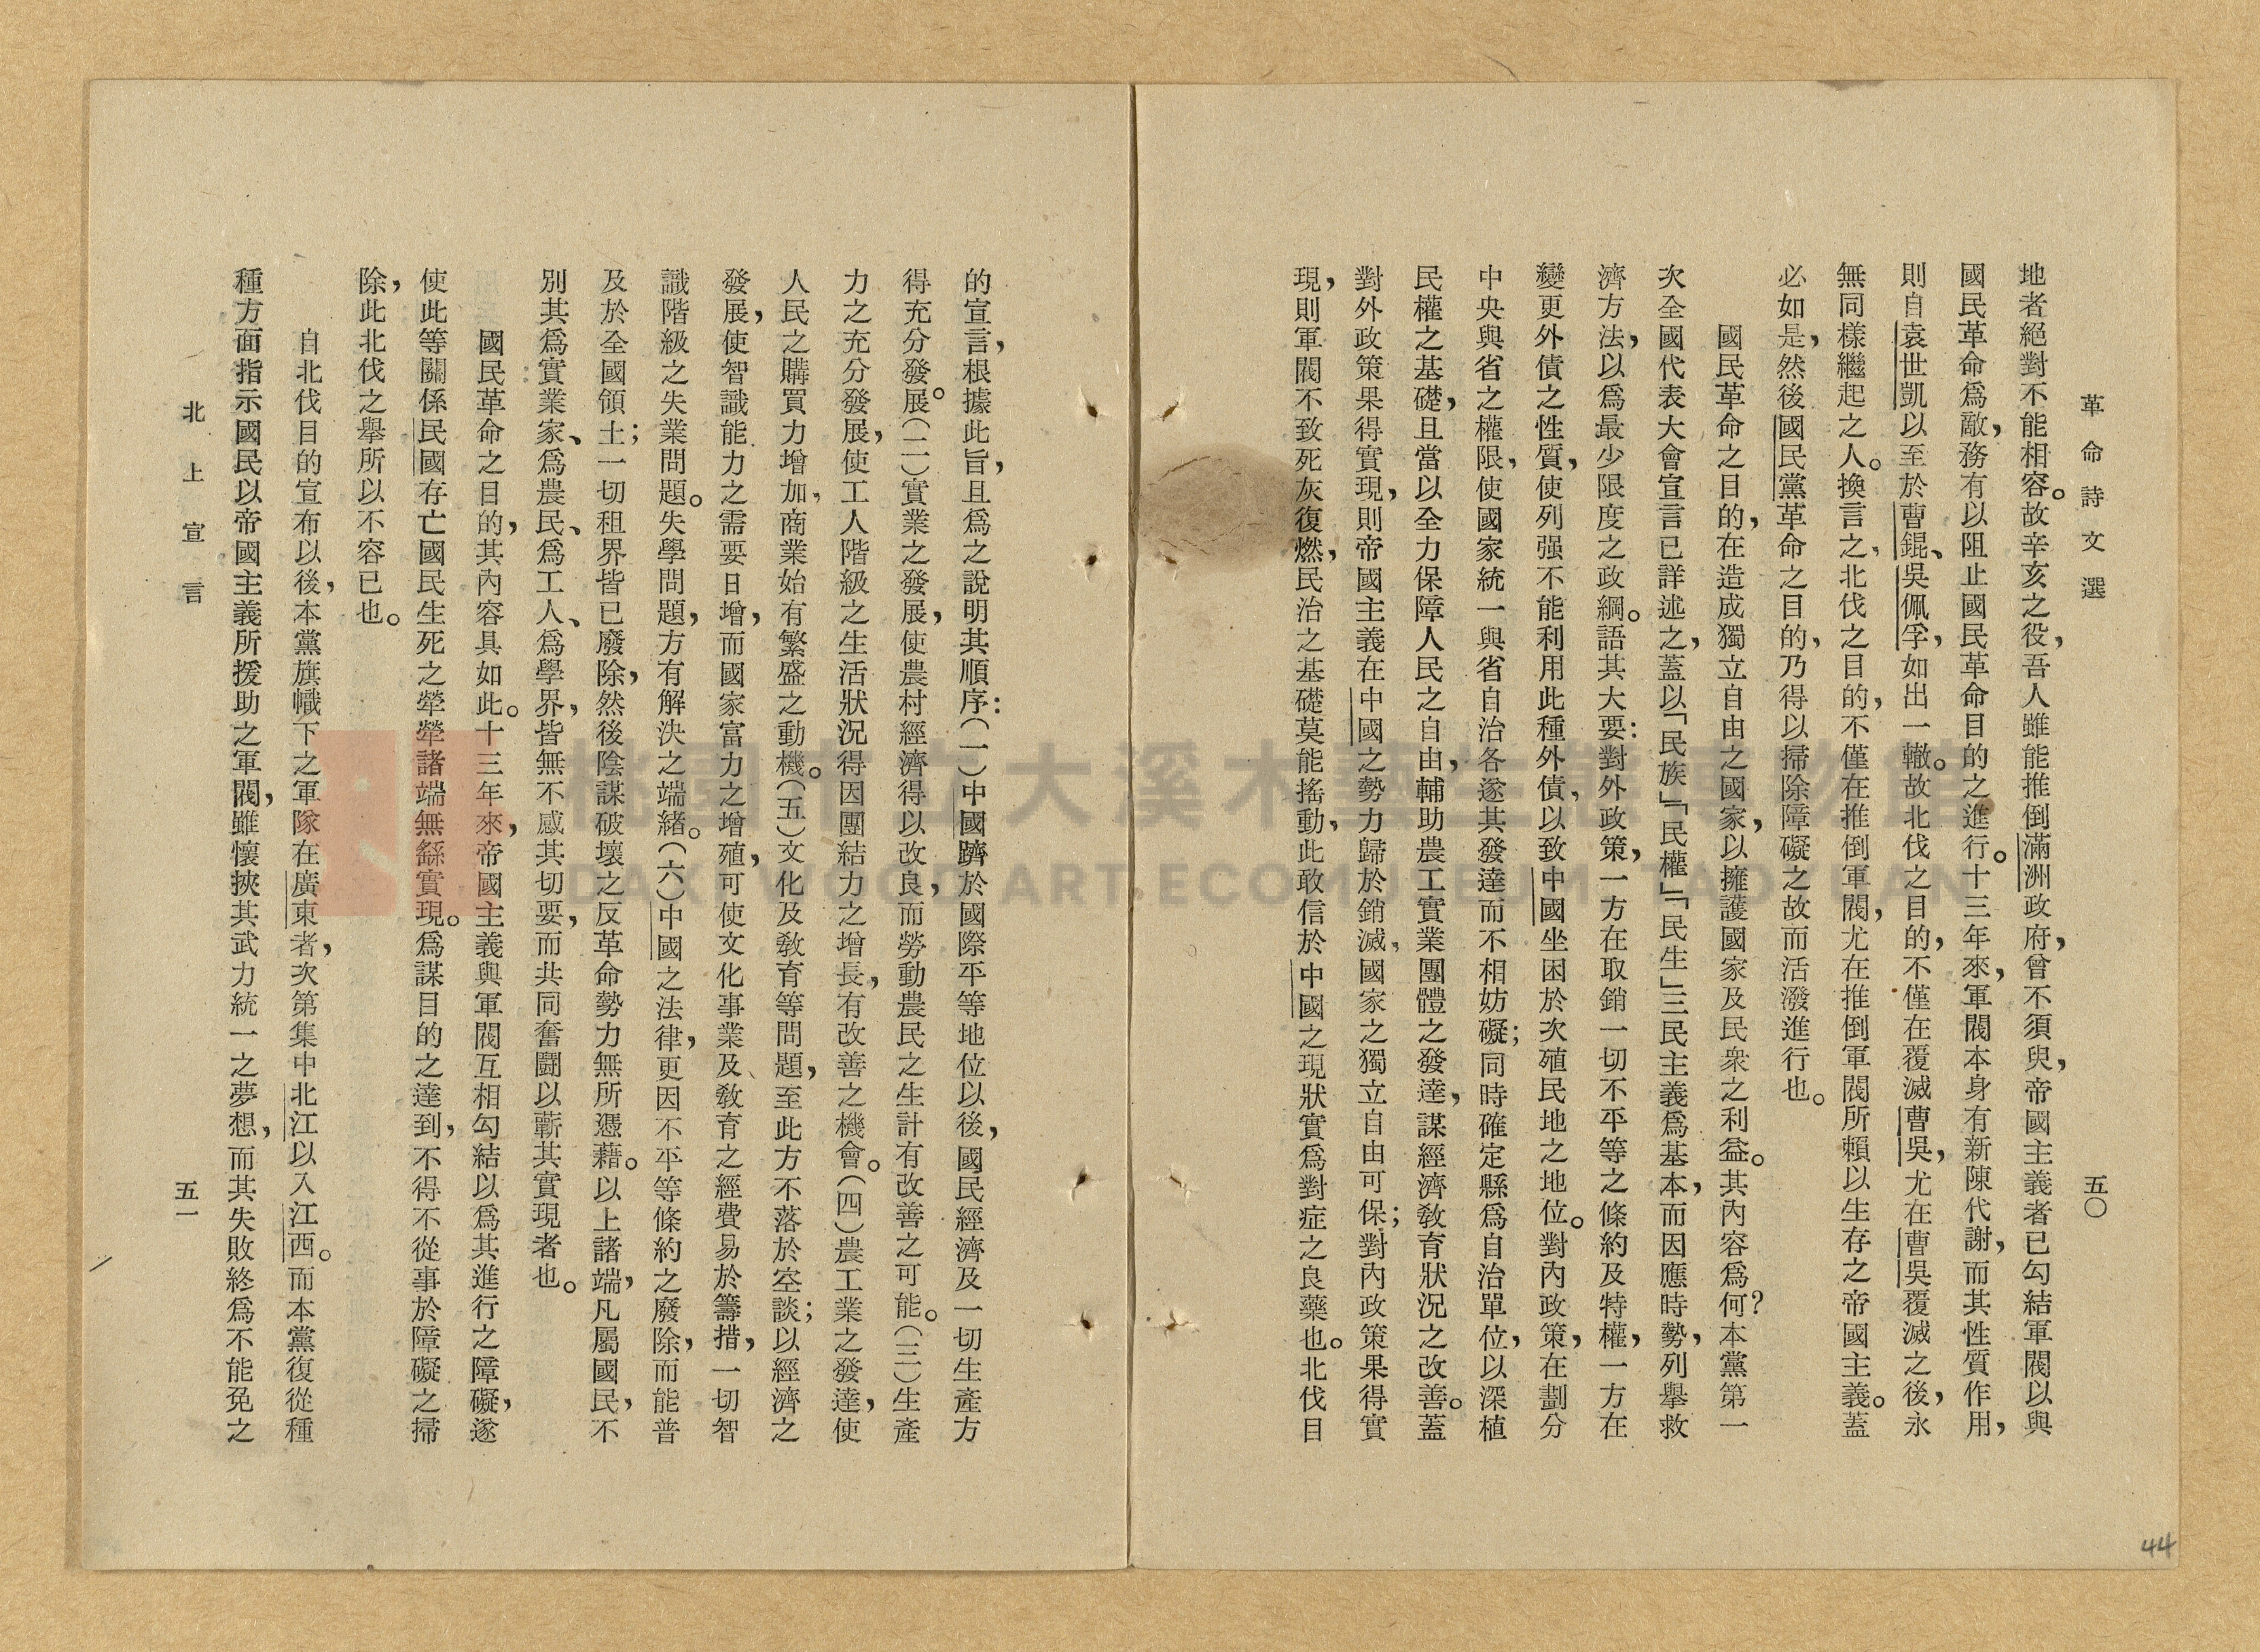 革命詩文選
五〇
地者絕對不能相容。故辛亥之役，吾人雖能推倒滿洲政府，曾不須臾，帝國主義者已勾結軍閥以與
國民革命爲敵，務有以阻止國民革命目的之進行。十三年來，軍閥本身有新陳代謝，而其性質作用，
則自袁世凱以至於曹錕、吳佩孚，如出一轍。故北伐之目的，不僅在覆滅曹吳，尤在曹吳覆滅之後，永
無同樣繼起之人。換言之，北伐之目的，不僅在推倒軍閥，尤在推倒軍閥所賴以生存之帝國主義。蓋
必如是，然後國民黨革命之目的，乃得以掃除障礙之故而活潑進行也。
國民革命之目的，在造成獨立自由之國家，以擁護國家及民衆之利益。其內容爲何？本黨第一
次全國代表大會宣言已詳述之，蓋以「民族」「民權」「民生」三民主義爲基本，而因應時勢，列舉救
濟方法，以爲最少限度之政綱。語其大要：對外政策，一方在取銷一切不平等之條約及特權，一方在
變更外債之性質，使列强不能利用此種外債，以致中國坐困於次殖民地之地位。對內政策，在劃分
中央與省之權限，使國家統一與省自治各遂其發達而不相妨礙；同時確定縣爲自治單位，以深植
民權之基礎，且當以全力保障人民之自由，輔助農工實業團體之發達，謀經濟敎育狀況之改善。蓋
對外政策果得實現，則帝國主義在中國之勢力歸於銷滅，國家之獨立自由可保；對內政策果得實
現，則軍閥不致死灰復燃，民治之基礎莫能搖動，此敢信於中國之現狀實爲對症之良藥也。北伐目
的宣言，根據此旨，且爲之說明其順序：（一）中國躋於國際平等地位以後，國民經濟及一切生產方
得充分發。展（二）實業之發展，使農村經濟得以改良，而勞動農民之生計有改善之可能。（三）生產
力之充分發展，使工人階級之生活狀況得因團結力之增長，有改善之機會。（四）農工業之發達，使
人民之購買力增加，商業始有繁盛之動機。（五）文化及敎育等問題，至此方不落於空談；以經濟之
發展，使智識能力之需要日增，而國家富力之增殖，可使文化事業及敎育之經費易於籌措，一切智
識階級之失業問題。失學問題，方有解決之端緒。（六）中國之法律，更因不平等條約之廢除，而能普
及於全國領土；一切租界皆已廢除，然後陰謀破壞之反革命勢力無所憑藉。以上諸端，凡屬國民，不
別其爲實業家、爲農民、爲工人、爲學界，皆無不感其切要，而共同奮鬭以蘄其實現者也。
國民革命之目的，其內容具如此。十三年來，帝國主義與軍閥互相勾結以爲其進行之障礙，遂
使此等關係民國存亡國民生死之犖犖諸端無繇實現。爲謀目的之達到，不得不從事於障礙之掃
除，此北伐之舉所以不容已也。
自北伐目的宣布以後，本黨旗幟下之軍隊在廣東者，次第集中北江以入江西。而本黨復從種
種方面指示國民以帝國主義所援助之軍閥，雖懷挾其武力統一之夢想，而其失敗終爲不能免之
北上宣言
五一
44
桃園市立大溪木藝生態博物館
DAXI WOOD ART ECOMUSEUM, TAOYUAN